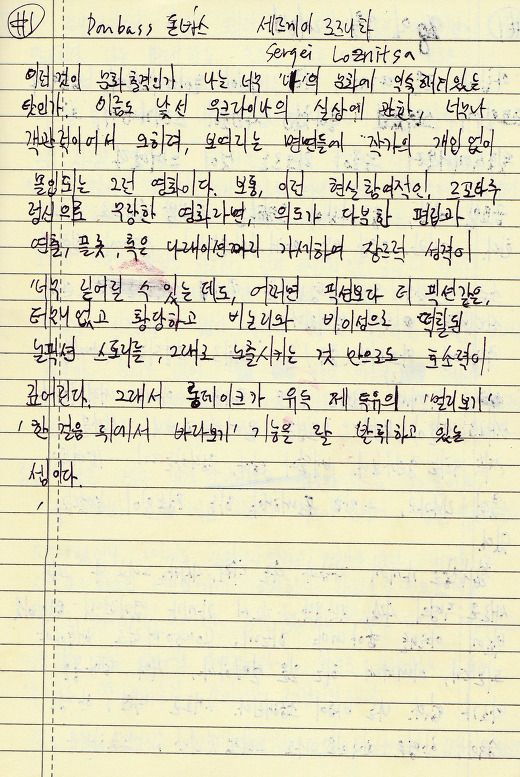 #1 Donbass 돈바스 세르게이 로즈니차
Sergei Loznitsa
이런 것이 문화충격인가. 나는 너무 '나'의 문화에 익숙해져있는
탓인가. 이름도 낯선 우크라이나의 실상에 관한, 너무나
객관적이어서 오히려, 보여지는 면면들에 작가의 개입 없이
몰입되는 그런 영화이다. 보통, 이런 현실참여적인,
형식으로 무장한 영화라면, 의도가 다분한 편집과
연출, 플롯, 혹은 나래이션까지 가세하여 장르적 성격이
너무 짙어질 수 있는 데도, 어쩌면 픽션보다 더 픽션같은,
어처구니없고 황당하고 비논리와 비이성으로 떡칠된
논픽션 스토리들, 그대로 노출시키는 것 만으로도 호소력이
짙어진다. 그래서 롱테이크가 유독 제 특유의 '멀리보기'
'한 걸음 뒤에서 바라보기' 기능을 잘 발휘하고 있는
셈이다.